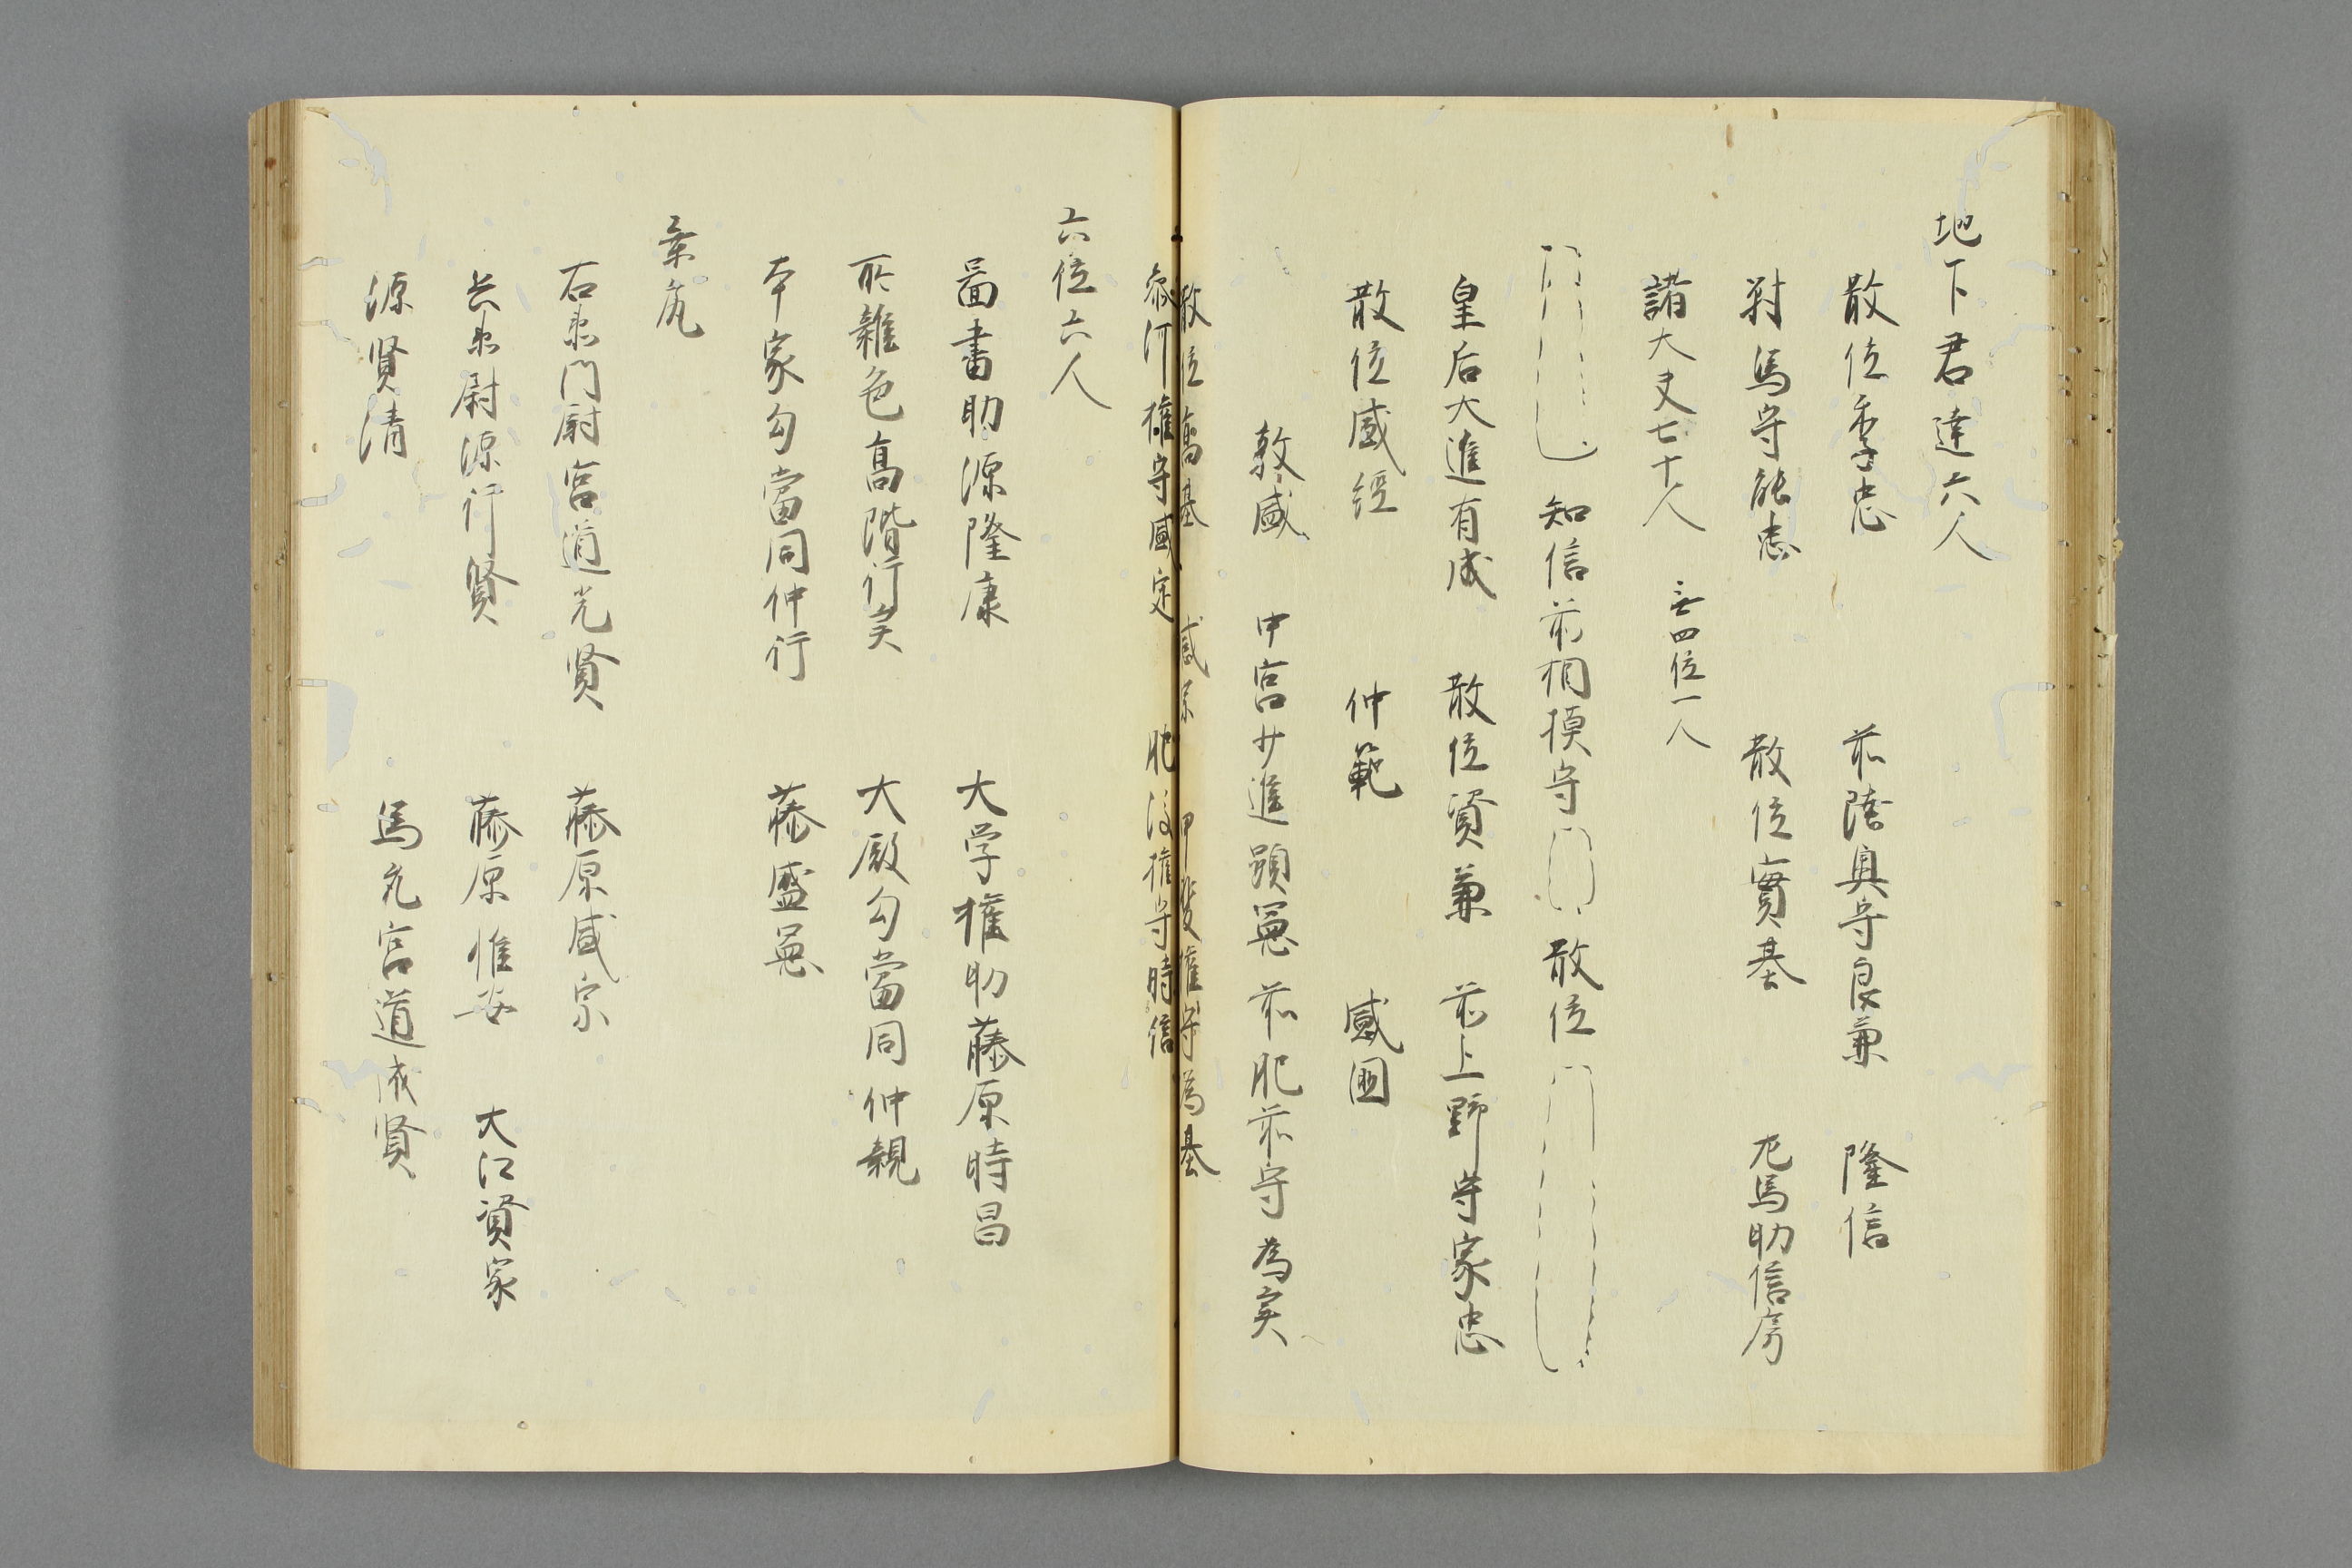 地下君達六人
散位季忠　前陸奥守良兼　隆信
対馬守能忠　散位實基　左馬助信房
諸大夫七十人　之中四位一人
知信前相模守　散位
皇后大進有成　散位資兼　前上野守家忠
散位盛経　仲範　盛国
敦盛　中宮少進顕憲　前肥前守為実
散位　基　盛　甲斐権守為基
参河権守盛定　肥後権守時信
六位六人
図書助源隆康　大学権助藤原時昌
所雑色高階行実　大殿勾当同仲親
本家勾當同仲行　藤盛憲
乗尻
右兵衛門尉宮道光賢　藤原盛宗
兵衛尉源行賢　藤原惟安　大江資家
源賢清　馬允宮道成賢